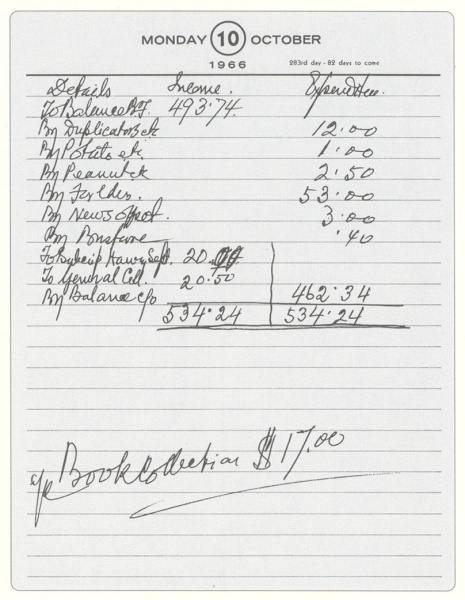 MONDAY 10 OCTOBER
1966 283rd day - 82 days to come
Details Income. Expenditure.
To Balance B/F. 493·74.
By Duplicator 12·00
By Potato 1·00
By Peanut 2·50
By 53·00
By News 3·00
By ·40
To Sept. 20.00
To General Coll. 20·50
By Balance c/o 462·34
534·24 534·24
Book Collection $17.00